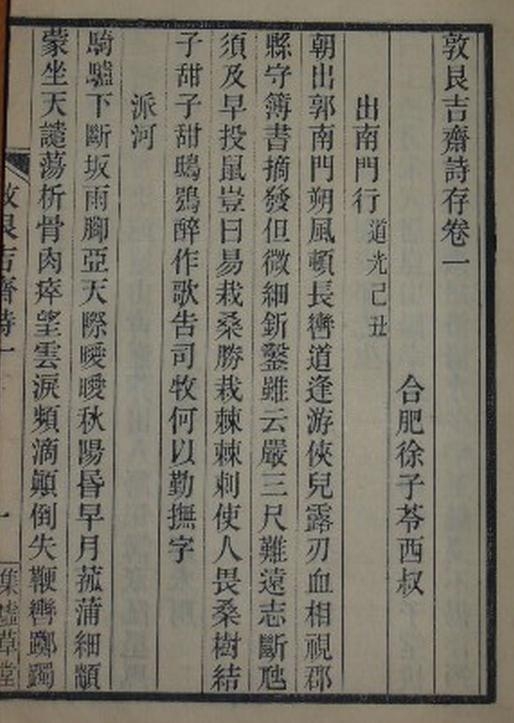 敦艮吉齋詩存卷一
合肥徐子苓西叔
出南門行道光己丑
朝出郭南門朔風頓長轡道逢游俠兒露刃血相視郡
縣守簿書摘發但微細釿鑿雖云嚴三尺難遠志斷虺
須及早投鼠豈曰易栽桑勝栽棘棘刺使人畏桑樹結
子甜子甜鴟鴞醉作歌告司牧何以勤撫字
派河
騎驢下斷坂雨腳亞天際曖曖秋陽昏早月菰蒲細顓
蒙坐天譴蕩析骨肉瘁望雲淚頻滴顛倒失鞭轡躑躅
敦艮吉齋詩一
一
集虛草堂